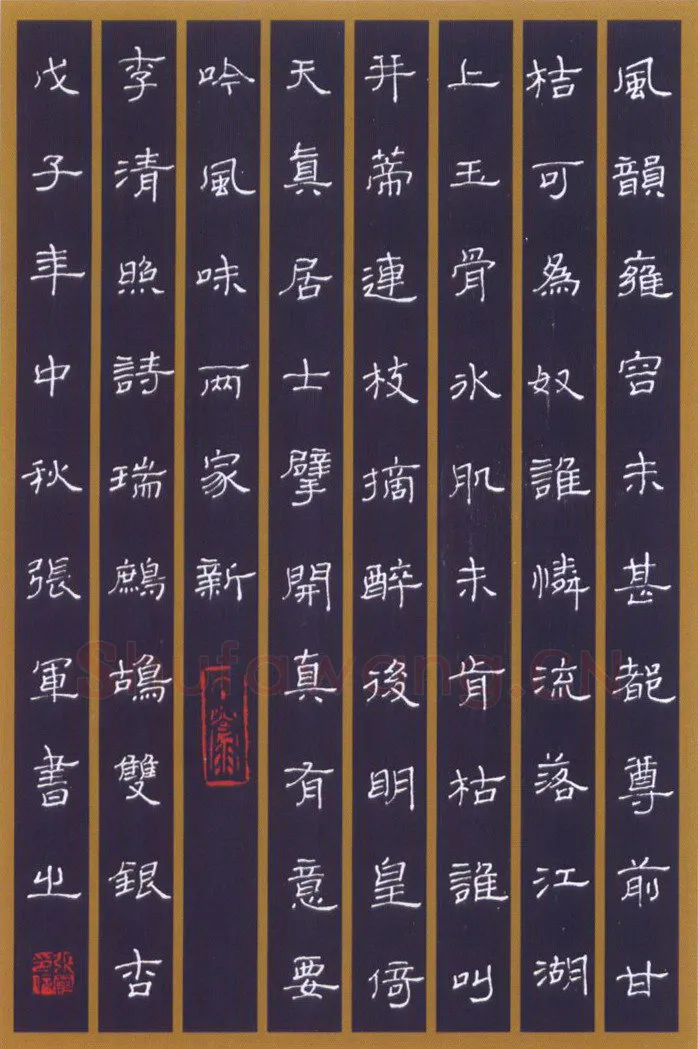 風韻雍容未甚都尊前甘
桔可為奴誰憐流落江湖
上玉骨冰肌未肯枯誰叫
并蒂連枝摘醉後明皇倚
天真居士擘開真有意要
吟風味兩家新
李清照詩瑞鷓鴣雙銀杏
戊子年中秋張軍書之
Shufawang.CN